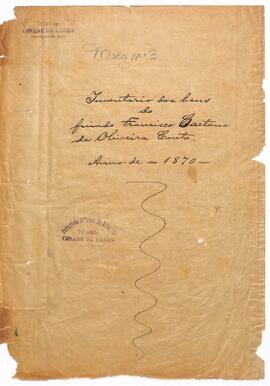 CIDADE DE LAGES
Maço nº 3
Inventario dos bens
do
finado Francisco Caetano
de Oliveira Couto.
Anno de - 1870 -
CIDADE DE LAGES